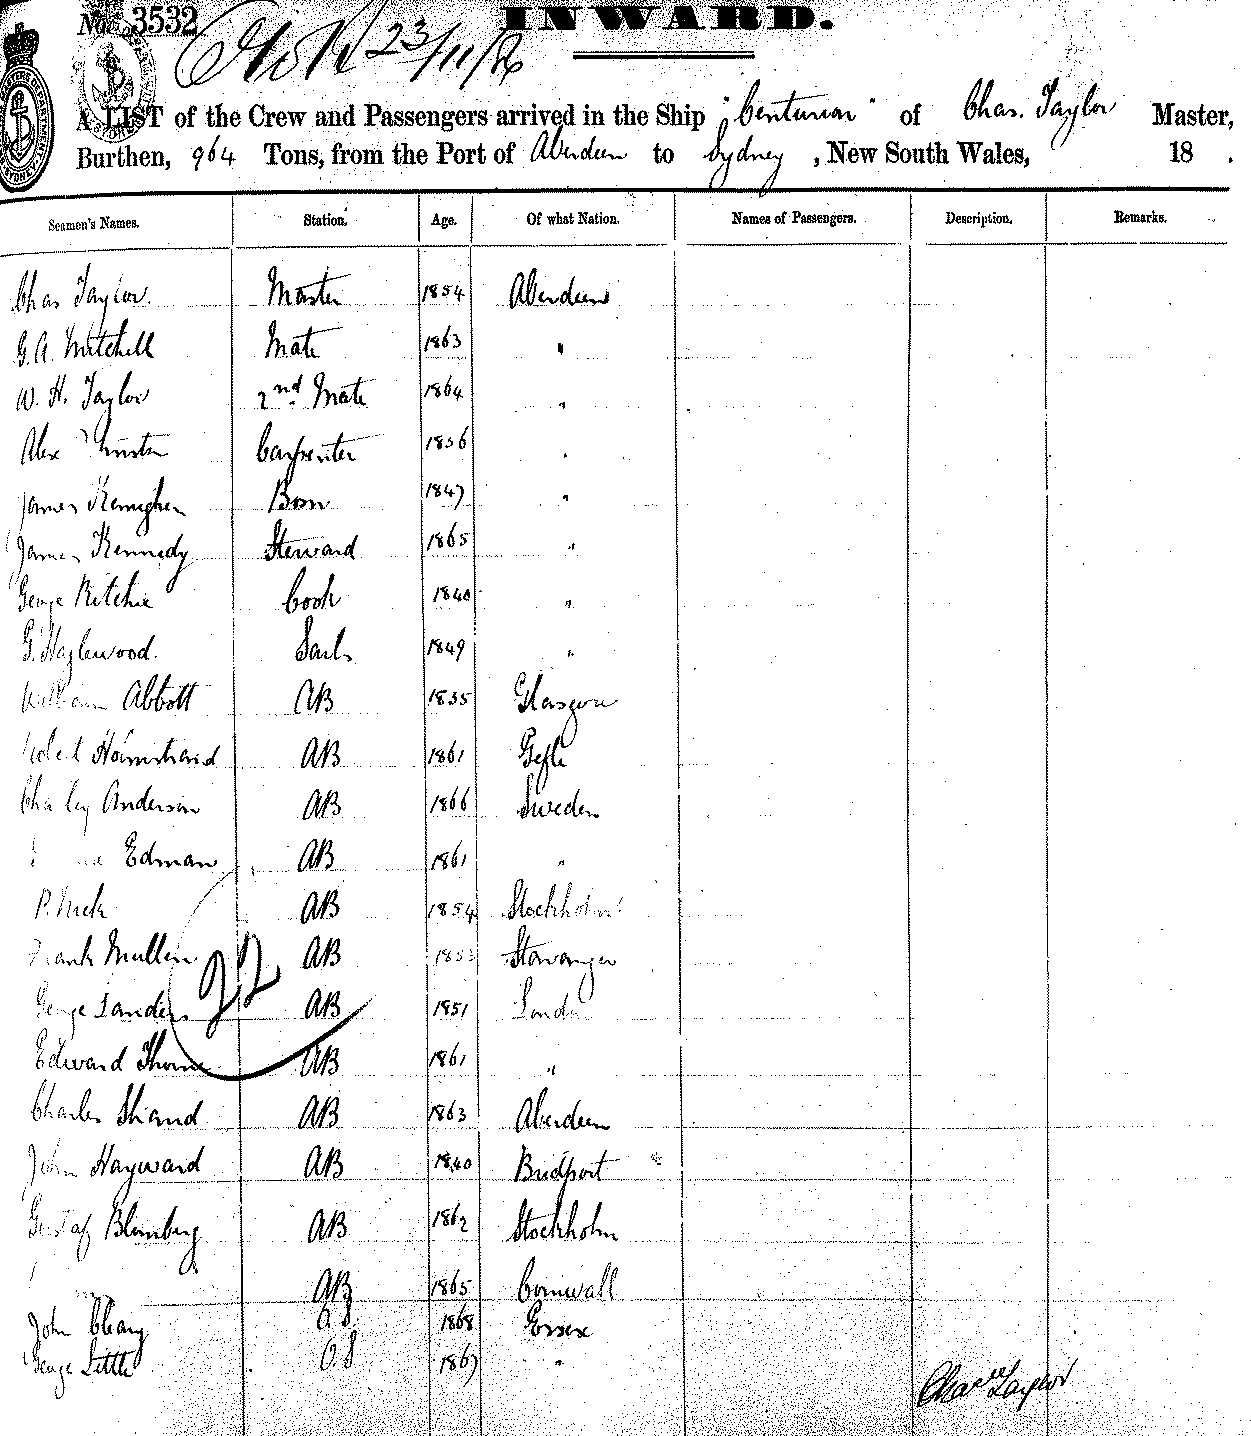 No. 3532
INWARD.
23/11/86
A LIST of the Crew and Passengers arrived in the Ship "Centurion" of Chas. Taylor Master,
Burthen, 964 Tons, from the Port of Aberdeen to Sydney, New South Wales, 18 .
Seamen's Names. Station. Age. Of what Nation. Names of Passengers. Description. Remarks.
Chas Taylor. Master 1854 Aberdeen
G. A. Mitchell Mate 1863 "
W. H. Taylor 2nd Mate 1864 "
Alex Carpenter 1856 "
James Bosn 1847 "
James Kennedy Steward 1865 "
George Ritchie Cook 1840 "
G. Hazlewood. Sails 1849 "
William Abbott AB 1835 Glasgow
AB 1861 Gefle
Charley Anderson AB 1866 Sweden
Edman AB 1861 "
P. Nick AB 1854 Stockholm
Frank Mullen AB 1853 Stavanger
George Sanders AB 1851 London
Edward Thorne AB 1861 "
22
Charles Shand AB 1863 Aberdeen
John Hayward AB 1840 Bridport
Gustaf Blomberg AB 1862 Stockholm
AB 1865 Cornwall
John Cleary O.S 1868 Essex
George Little O.S 1867 "
Chas Taylor